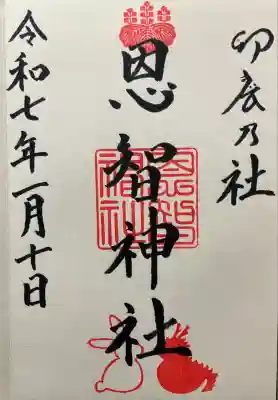 卯辰乃社
恩智神社
恩智
神社
令和七年一月十日